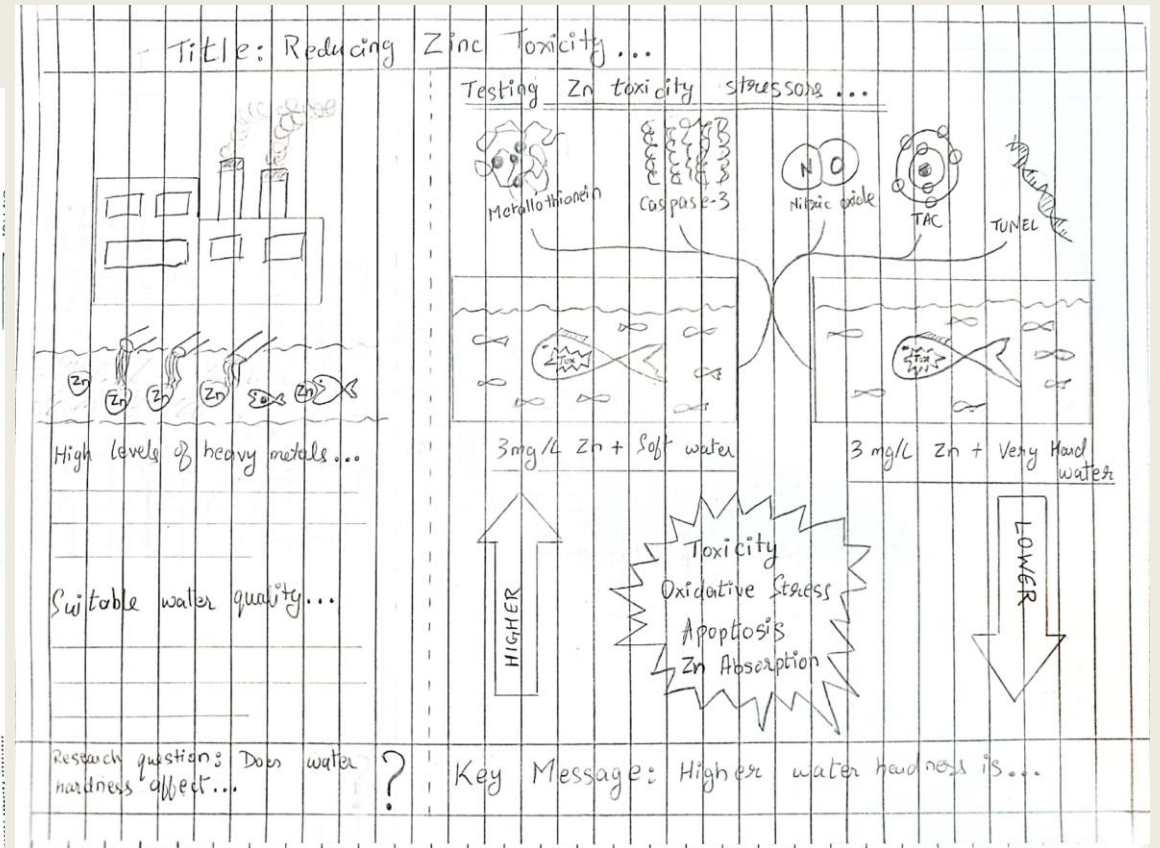 Title: Reducing Zinc Toxicity...
Zn
Zn
Zn
Zn
Zn
High levels of heavy metals...
Suitable water quality...
Research question: Does water
hardness affect...
?
Testing Zn toxicity stressors...
Metallothionein
Caspase-3
N O
Nitric oxide
TAC
TUNEL
Tox
3mg/L Zn + Soft water
Tox
3 mg/L Zn + Very Hard
water
HIGHER
Toxicity
Oxidative Stress
Apoptosis
Zn Absorption
LOWER
Key Message: Higher water hardness is...